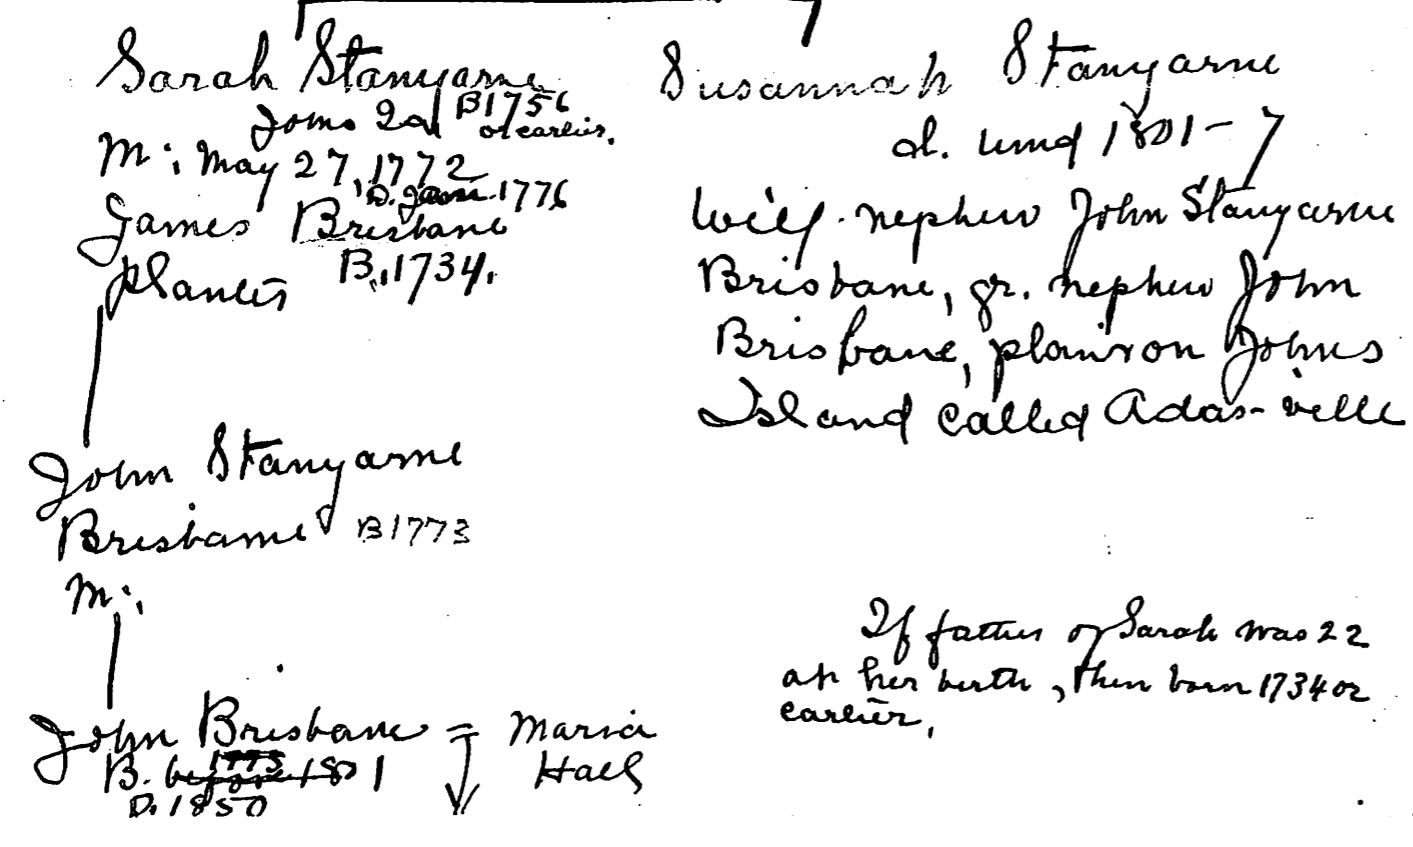 Sarah Stanyarne
Johns Id B1756
or earlier.
M: May 27, 1772
D. Jan. 1776
James Brisbane
planter B. 1734.
John Stanyarne
Brisbane B1773
M:
John Brisbane = Maria
B. before 1801 Hall
1773
D. 1850
Susannah Stanyarne
d. unmd 1801-7
Will. nephew John Stanyarne
Brisbane, gr. nephew John
Brisbane, plan'r on Johns
Island called Adas-ville
If father of Sarah was 22
at her birth, then born 1734 or
earlier.